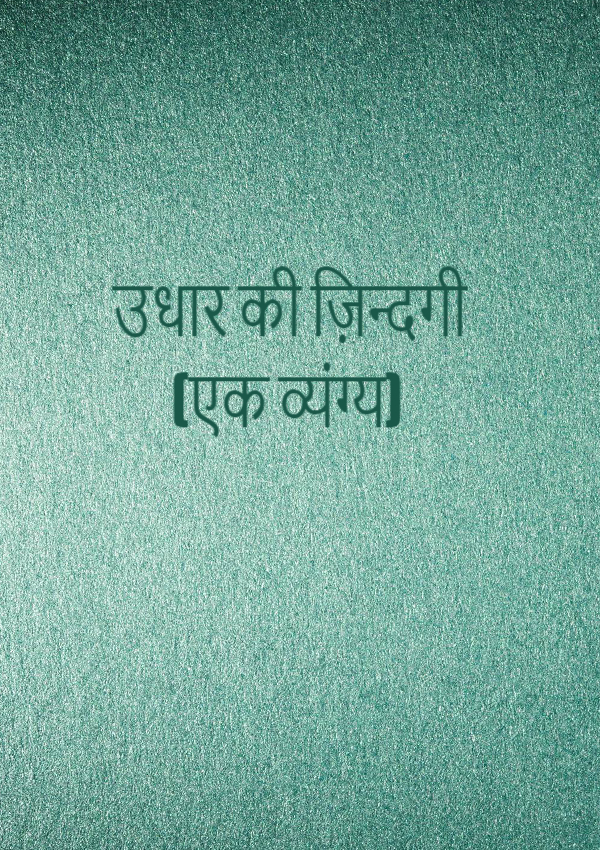 उधार की ज़िन्दगी
(एक व्यंग्य)